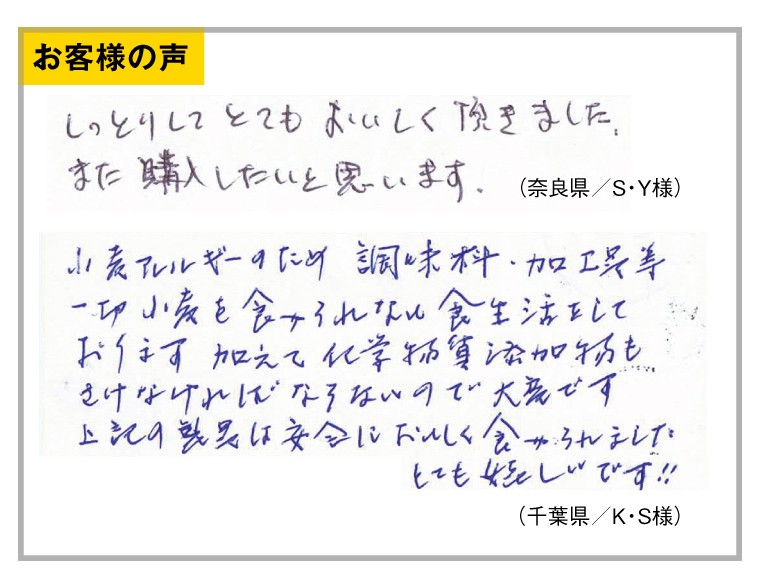 お客様の声
しっとりして とても おいしく 頂きました。
また 購入したいと思います。
（奈良県／S・Y様）
小麦アレルギーのため 調味料・加工品等
一切 小麦を 食べられない 食生活をして
おります 加えて 化学物質添加物も
さけなければならないので 大変です
上記の 製品は 安全に おいしく 食べられました
とても 嬉しいです!!
（千葉県／K・S様）